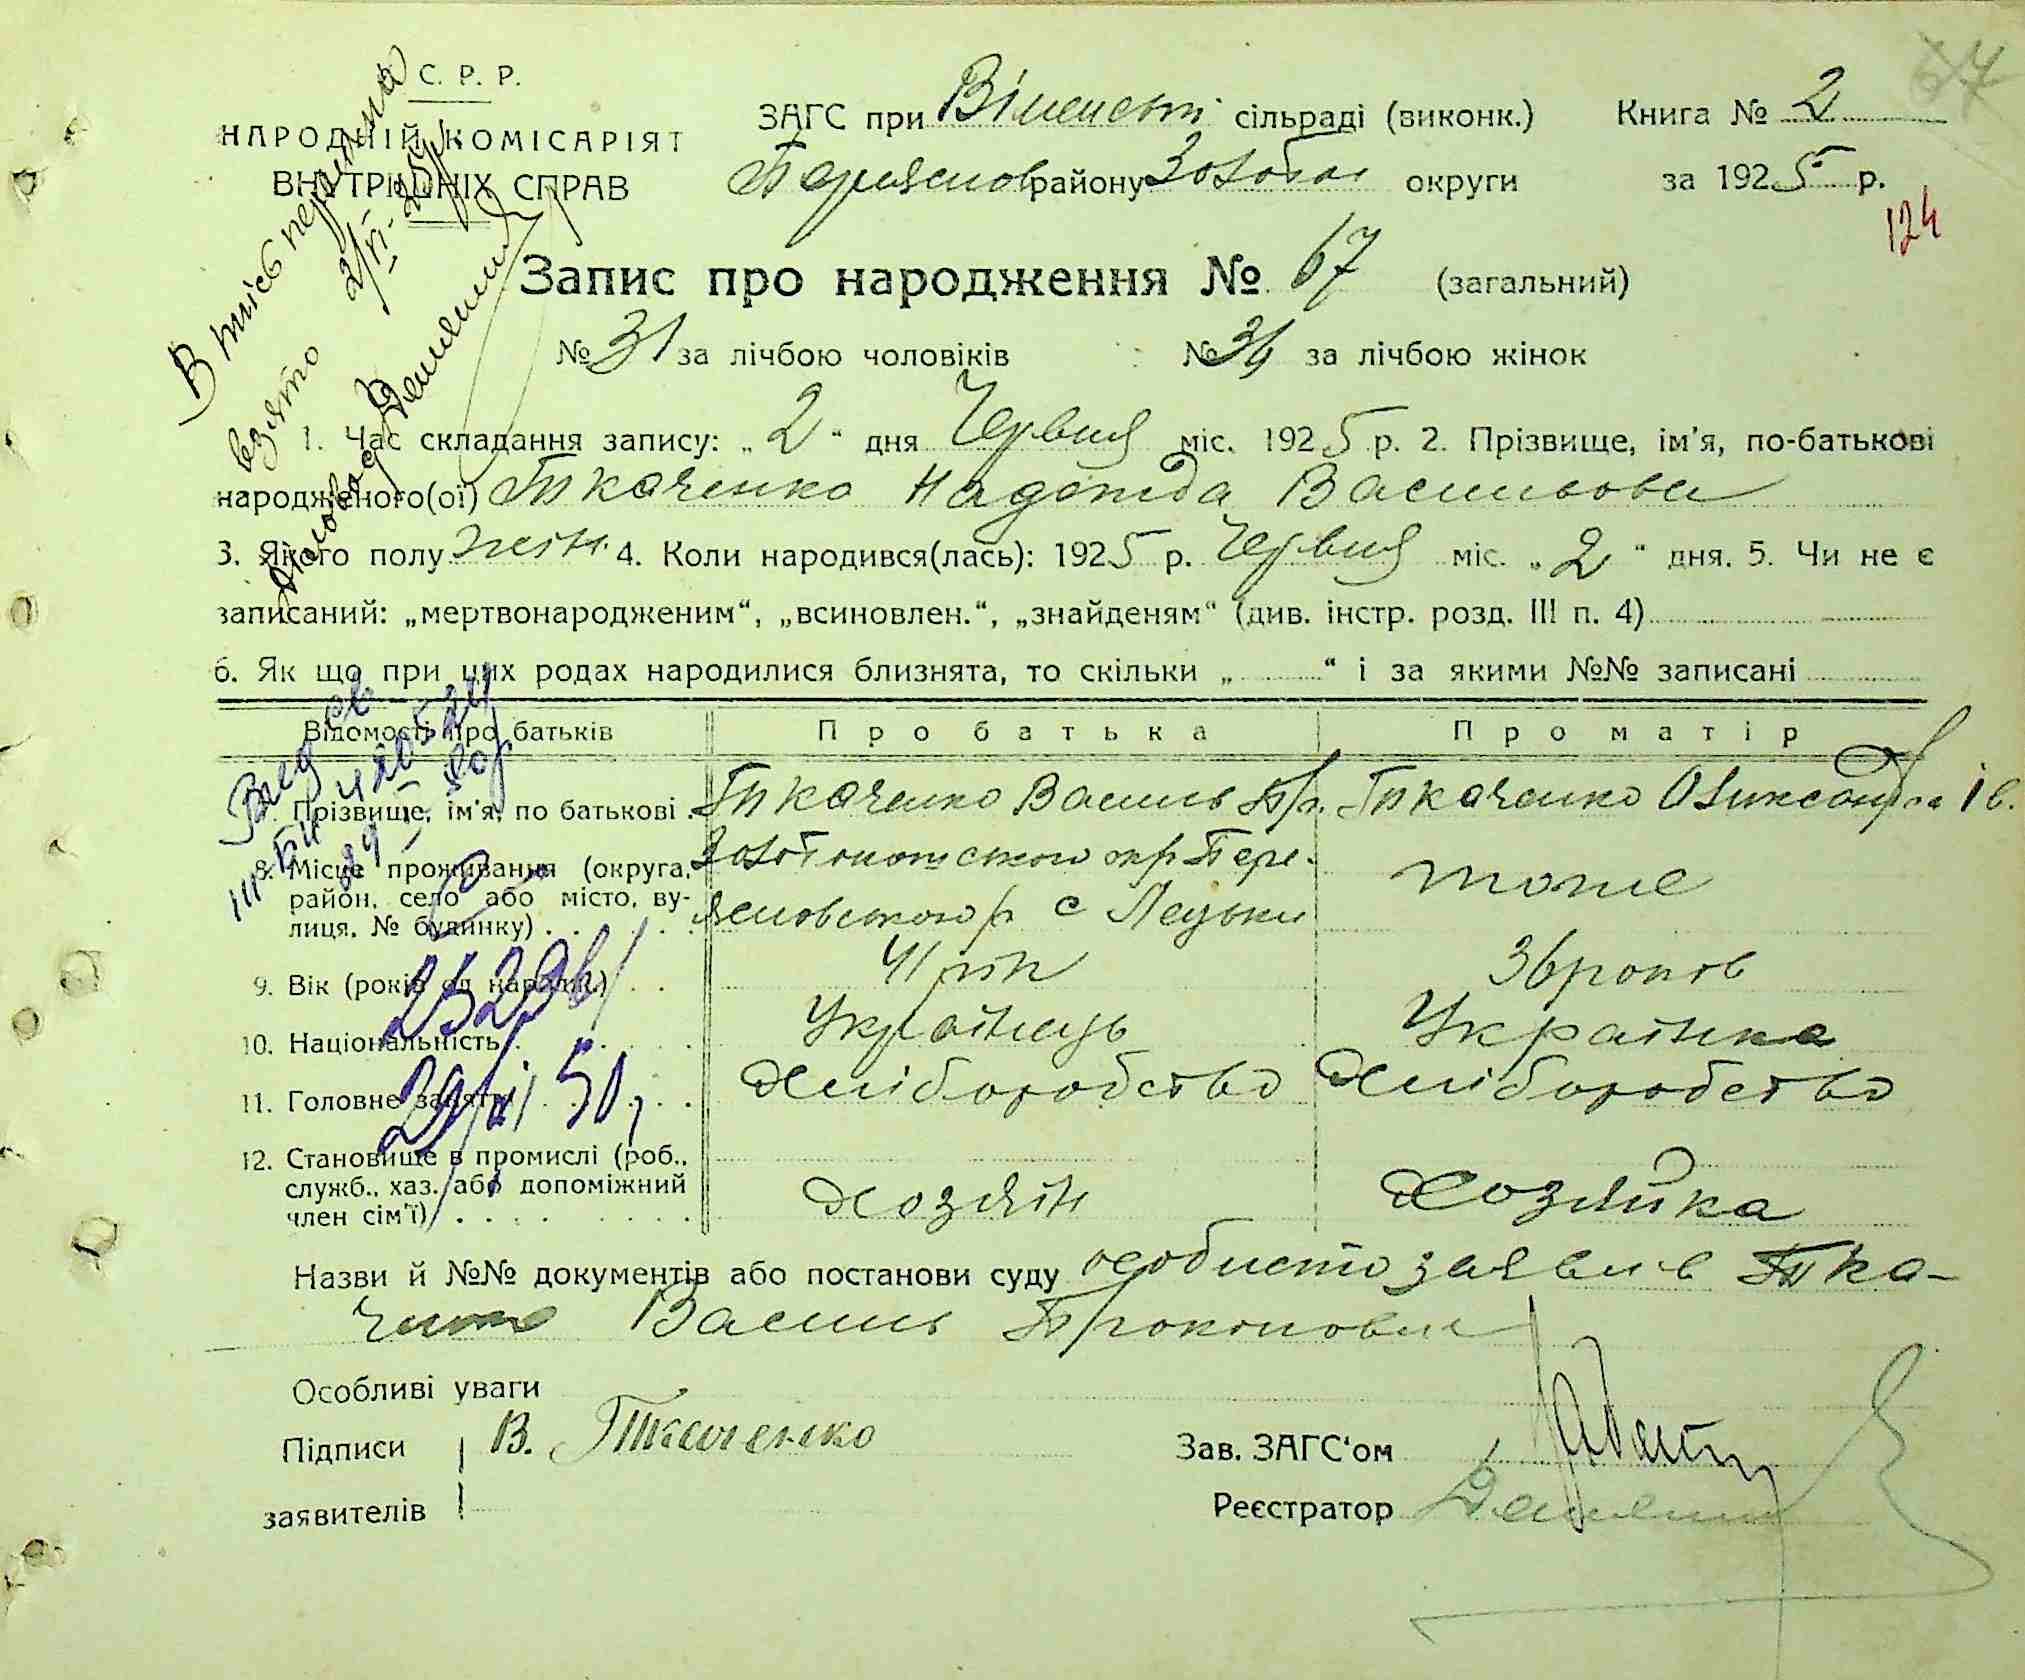 С. Р. Р.
НАРОДНІЙ КОМІСАРІЯТ
ВНУТРІШНІХ СПРАВ
ЗАГС при сільраді (виконк.) Книга № 2
району Золотон округи за 1925 р.
124
Запис про народження № 67 (загальний)
№ 31 за лічбою чоловіків № 36 за лічбою жінок
1. Час складання запису: „2“ дня Червня міс. 1925 р. 2. Прізвище, ім'я, по-батькові
народженого(ої) Ткаченко Надежда Васильовна
3. Якого полу жін. 4. Коли народився(лась): 1925 р. Червня міс. „2“ дня. 5. Чи не є
записаний: „мертвонародженим“, „всиновлен.“, „знайденям“ (див. інстр. розд. III п. 4)
6. Як що при цих родах народилися близнята, то скільки „ “ і за якими №№ записані
Відомость про батьків Про батька Про матір
7. Прізвище, ім'я, по батькові . Ткаченко Василь Пр. Ткаченко Олександра Ів.
8. Місце проживання (округа, район, село або місто, вулиця, № будинку) Золотоношського окр. Переяславського р с Лецьки тоже
9. Вік (років од народж.) . . 41 літ 36 років
10. Національність Українець Українка
11. Головне заняття Хліборобство Хліборобство
12. Становище в промислі (роб., служб., хаз. або допоміжний член сім'ї) Хозяін Хозяйка
Назви й №№ документів або постанови суду особисто заявив Тка-
ченко Василь Прокопович
Особливі уваги
Підписи В. Ткаченко Зав. ЗАГС'ом
заявителів Реєстратор